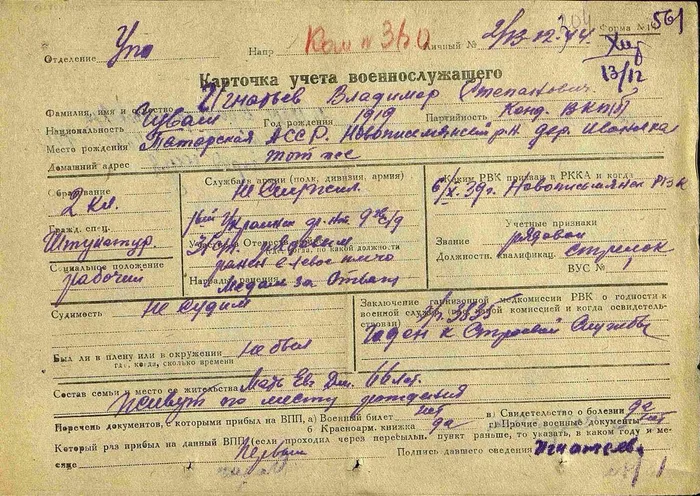 561
Форма №
Отделение Упо Напр Ком п 360 Личный № 2/13.12.44
13/12
Карточка учета военнослужащего
Фамилия, имя и отчество Игнатьев Владимир Степанович
Национальность Чуваш Год рождения 1919 Партийность Канд. ВКПб
Место рождения Татарская АССР. Новописмянский р-н дер.
Домашний адрес тот же
Образование
2 кл.
Гражд. спец.
Штукатур.
Социальное положение
рабочий
Служба в армии (полк, дивизия, армия)
не служил.
ранен в левое плечо
Награждения Медаль за Отвагу
Каким РВК призван в РККА и когда
6/X.39г. Новописмянский РВК
Учетные признаки
Звание рядовой
Должности. квалификац. стрелок
ВУС № 1
Судимость не судим
Был ли в плену или в окружении не был
где, когда, сколько времени
Заключение гарнизонной медкомиссии РВК о годности к
военной службе
Годен к Строевой Службы
Состав семьи и место ее жительства Мать
по месту рождения
Перечень документов, с которыми прибыл на ВПП, а) Военный билет нет в) Свидетельство о болезни да
б) Красноарм. книжка да г) Прочие военные документы нет
Который раз прибыл на данный ВПП (если проходил через пересыльн. пункт раньше, то указать, в каком году и ме-
сяце Первый Подпись давшего сведения Игнатьев